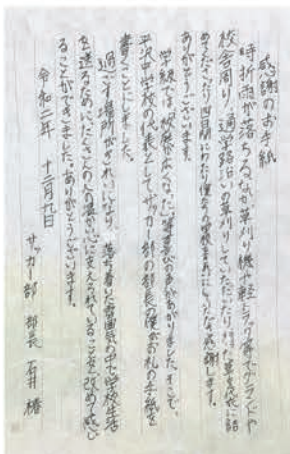 感謝のお手紙
時折雨が落ちるなか草刈り機や軽トラック等でグランドや
校舎周り、通学路沿いの草刈りをしていただいたり、刈った草を袋に詰
めてくださったり四日間にわたり僕たちの学校を
ありがとうございます。
学級では「校庭が広くなった」等の喜びの声があがりました。そして、
平沢中学校の代表として、サッカー部の部長の僕がお礼の手紙を
書くことにしました。
過ごす場所がきれいになり、落ち着いた雰囲気の中で学校生活
を送るために、たくさんの人の温かい心に支えられていることを改めて感じ
ることができました。ありがとうございます。
令和二年 十二月九日
サッカー部 部長 石井 椿